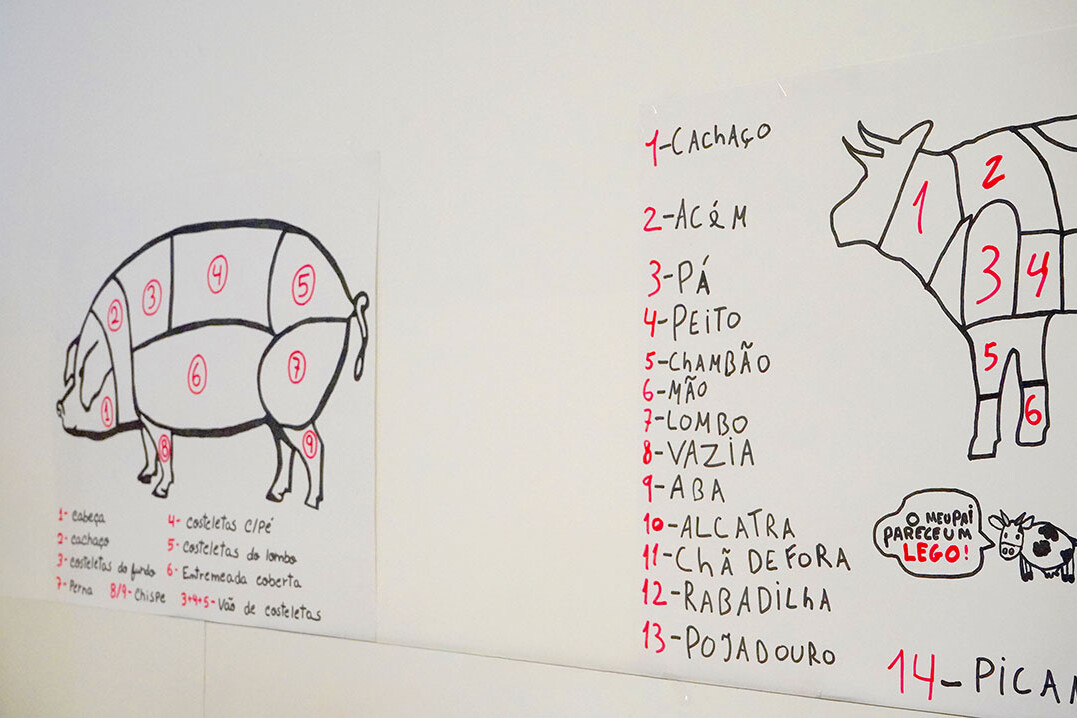 2
3
4
5
1
6
7
8
9
1- Cabeça
2- cachaço
3- costeletas do fundo
7- Perna
8/9- Chispe
3+4+5- Vão de costeletas
4- costeletas C/Pé
5- costeletas do lombo
6- Entremeada coberta
1-CACHAÇO
2-ACéM
3-PÁ
4-PEITO
5-ChAMBÃO
6-MÃO
7-LOMBO
8-VAZIA
9-ABA
10-ALCATRA
11-CHÃ DE FORA
12-RABADILhA
13-POJADOURO
14-PICAN
1
2
3
4
5
6
O MEU PAI
PARECE UM
LEGO!